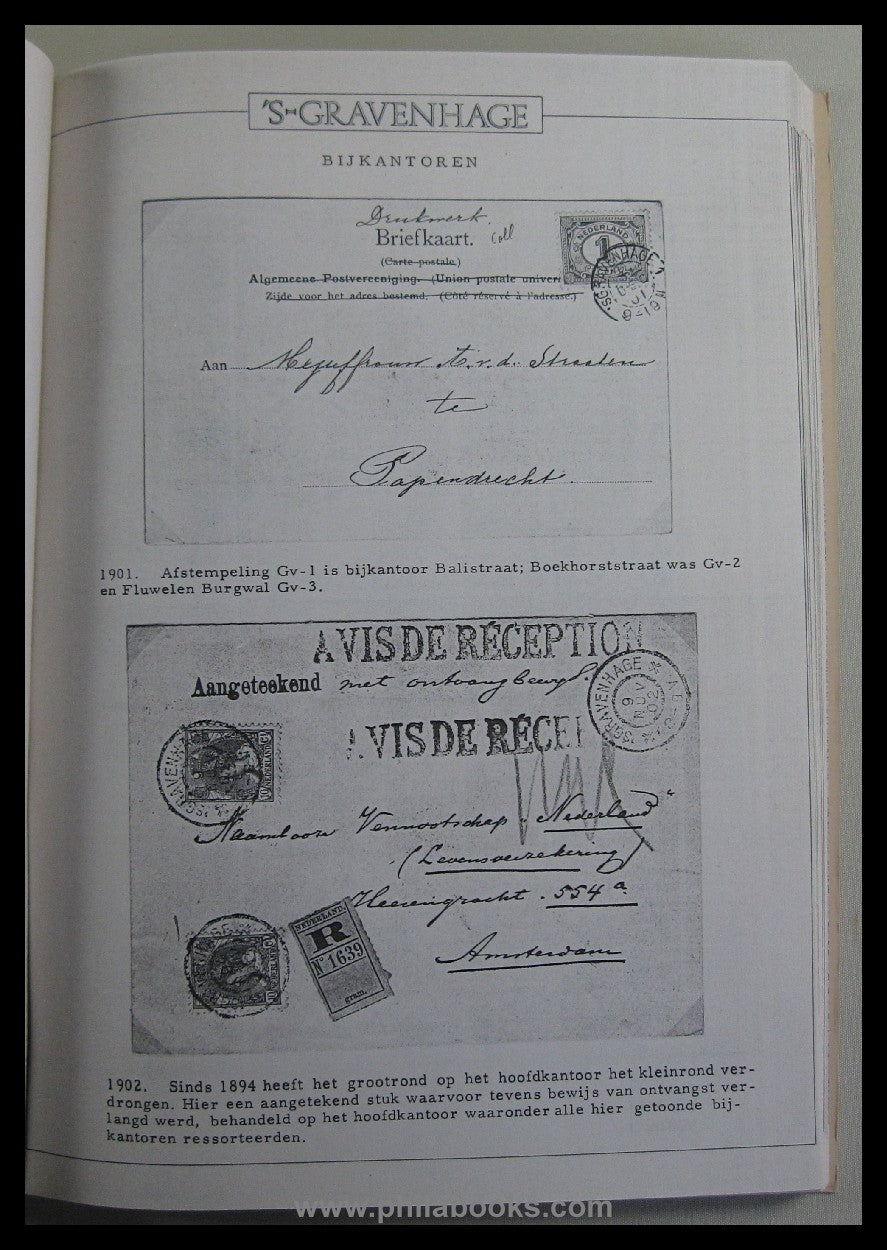 'S-GRAVENHAGE
BIJKANTOREN
Drukwerk.
Briefkaart.
Coll
(Carte postale.)
Algemeene Postvereeniging. (Union postale univer
Zijde voor het adres bestemd. (Côté réservé à l'adresse.)
NEDERLAND
1
'SGRAVENHAGE
9-10V
Aan Mejuffrouw A. v. d. Straaten
te
Papendrecht.
1901. Afstempeling Gv-1 is bijkantoor Balistraat; Boekhorststraat was Gv-2
en Fluwelen Burgwal Gv-3.
AVIS DE RÉCEPTION
Aangeteekend met ontvangbewijs.
'SGRAVENHAGE
9 NOV 02
AVIS DE RÉCE
'SGRAVENH
NEDERLAND
Naamlooze Vennootschap „Nederland"
(Levensverzekering)
Heerengracht. 554a
Amsterdam
NEDERLAND.
R
No 1639
gram.
1902. Sinds 1894 heeft het grootrond op het hoofdkantoor het kleinrond ver-
drongen. Hier een aangetekend stuk waarvoor tevens bewijs van ontvangst ver-
langd werd, behandeld op het hoofdkantoor waaronder alle hier getoonde bij-
kantoren ressorteerden.
www.philabooks.com